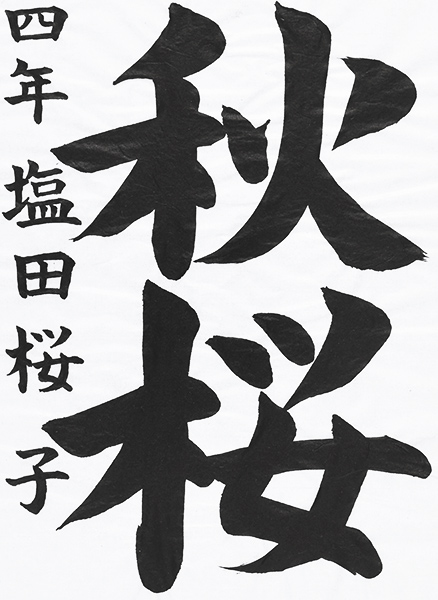 秋桜
四年 塩田桜子